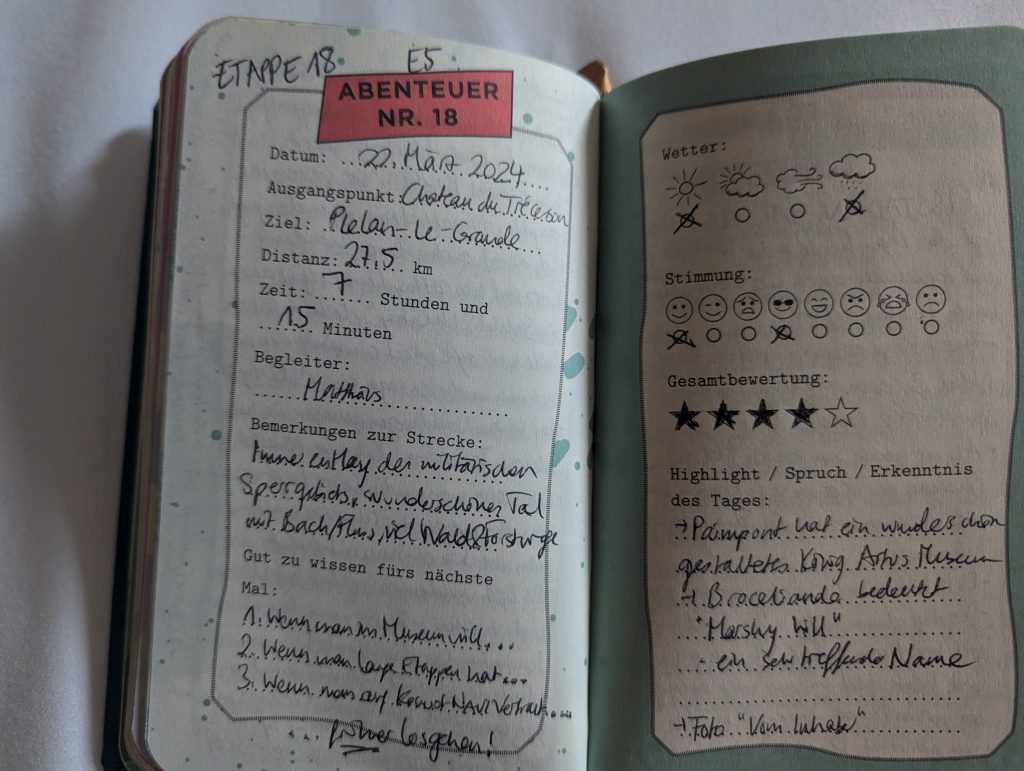 ETAPPE 18 E5
ABENTEUER
NR. 18
Datum: 22. März 2024
Ausgangspunkt: Chateau du Trécesson
Ziel: Plelan-Le-Grande
Distanz: 27,5 km
Zeit: 7 Stunden und
15 Minuten
Begleiter:
Matthias
Bemerkungen zur Strecke:
Immer entlang des militärischen
Sperrgebiets, wunderschönes Tal
mit Bach/Fluss, viel Wald &
Gut zu wissen fürs nächste
Mal:
1. Wenn man ins Museum will...
2. Wenn man lange Etappen hat...
3. Wenn man auf Komoot NAVI vertraut...
... früher losgehen!
Wetter:
Stimmung:
Gesamtbewertung:
Highlight / Spruch / Erkenntnis
des Tages:
→ Paimpont hat ein wunderschön
gestaltetes König Artus Museum
→ Broceliande bedeutet
"Marshy Hill"
- ein sehr treffender Name
→ Foto "Vom Inhaber"